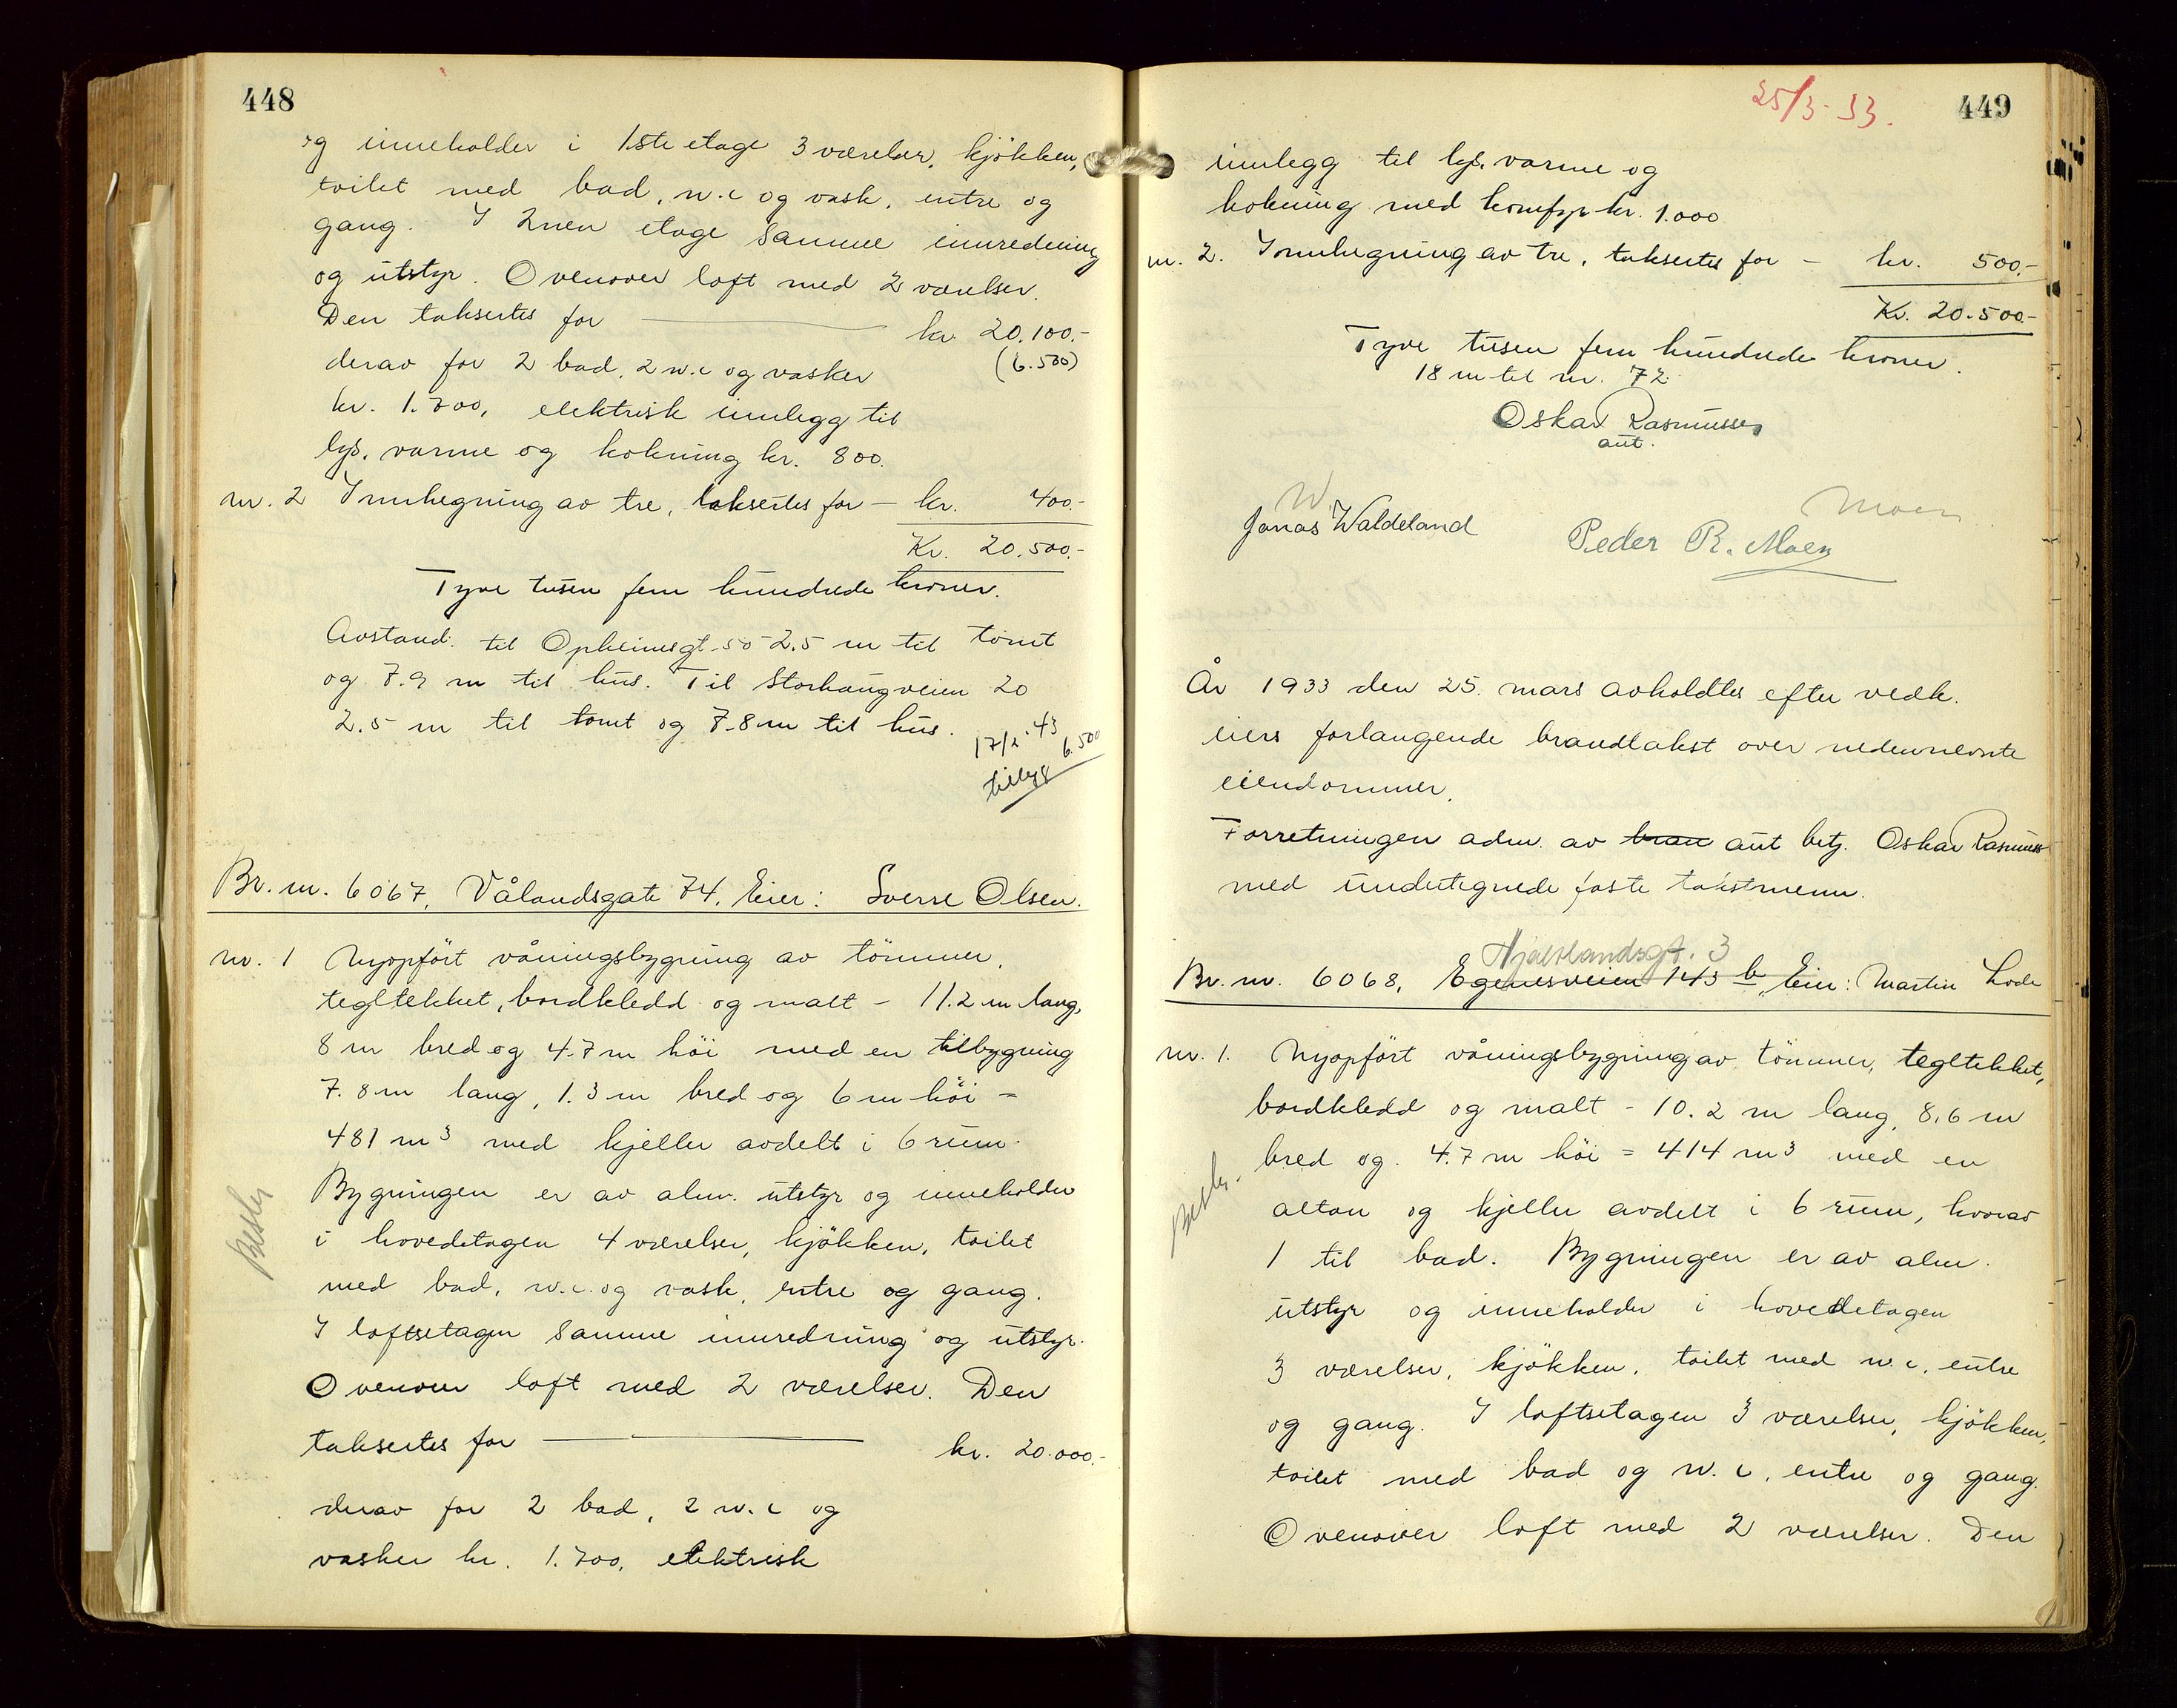 448
og inneholder i 1ste etage 3 værelser, kjökken,
toilet med bad, w.c og vask, entre og
gang. I 2nen etage samme innredning
og utstyr. Ovenover loft med 2 værelser.
Den taksertes for kr 20.100.-
(6.500)
derav for 2 bad, 2 w.c og vasker
kr. 1.700, elektrisk innlegg til
lys, varme og kokning kr. 800.
nr. 2 Innhegning av tre, taksertes for - kr. 400.-
Kr. 20.500.-
Tyve tusen fem hundrede kroner.
Avstand: til Opheimsgt 2.5 m til tomt
og 7.9 m til hus. Til Storhaugveien 20
2.5 m til tomt og 7.8 m til hus.
17/2.43
tilbygg 6.500
Br. nr. 6067, Vålandsgate 74, Eier: Sverre Olsen.
nr. 1 Nyopfört våningsbygning av tömmer,
tegltekket, bordkledd og malt - 11.2 m lang,
8 m bred og 4.7 m höi med en tilbygning
7.8 m lang, 1.3 m bred og 6 m höi =
481 m³ med kjeller avdelt i 6 rum.
Bygningen er av alm. utstyr og inneholder
Beskr
i hovedetagen 4 værelser, kjökken, toilet
med bad, w.c. og vask, entre og gang.
I loftsetagen samme innredning og utstyr.
Ovenover loft med 2 værelser. Den
taksertes for kr. 20.000.-
derav for 2 bad, 2 w.c og
vasker kr. 1.700, elektrisk
25/3-33.
449
innlegg til lys, varme og
kokning med komfyr kr. 1.000
nr. 2. Innhegning av tre, taksertes for - kr. 500.-
Kr. 20.500.-
Tyve tusen fem hundrede kroner.
18 m til nr. 72
Oskar Rasmussen
aut.
W Moen
Jonas Waldeland Peder R. Moen
År 1933 den 25. mars avholdtes efter vedk.
eiers forlangende brandtakst over nedennevnte
eiendommer.
Forretningen adm. av bran aut betj. Oskar Rasmuss
med undertegnede faste takstmenn.
Hjaltlandsgt. 3
Br. nr. 6068, Egenesveien 143 b, Eier: Martin Lode
nr. 1. Nyopfört våningsbygning av tömmer, tegltekket,
bordkledd og malt - 10.2 m lang, 8.6 m
bred og 4.7 m höi = 414 m³ med en
Beskr.
altan og kjeller avdelt i 6 rum, hvorav
1 til bad. Bygningen er av alm.
utstyr og inneholder i hovedetagen
3 værelser, kjökken, toilet med w.c, entre
og gang. I loftsetagen 3 værelser, kjökken,
toilet med bad og w.c, entre og gang.
Ovenover loft med 2 værelser. Den